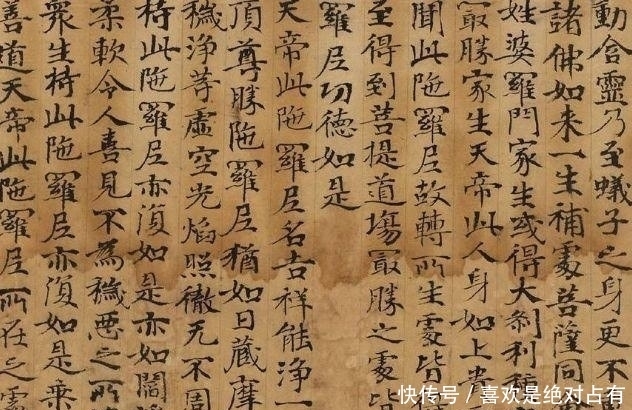 動含靈乃至蟻子之身更不
諸佛如来一生補處菩薩同
姓婆羅門家生或得大刹利
冣勝家生天帝此人身如上貴
聞此陁羅尼故轉所生處皆
至得到菩提道塲冣勝之處皆
羅尼功德如是
天帝此陁羅尼名吉祥能淨一
頂尊勝陁羅尼猶如日藏摩
穢淨等虛空光焰照徹无不周
持此陁羅尼亦復如是亦如閻
柔軟令人喜見不為穢惡之所
衆生持此陁羅尼亦復如是乗
善道天帝此陁羅尼所在之處
快传号 / 喜欢是绝对占有